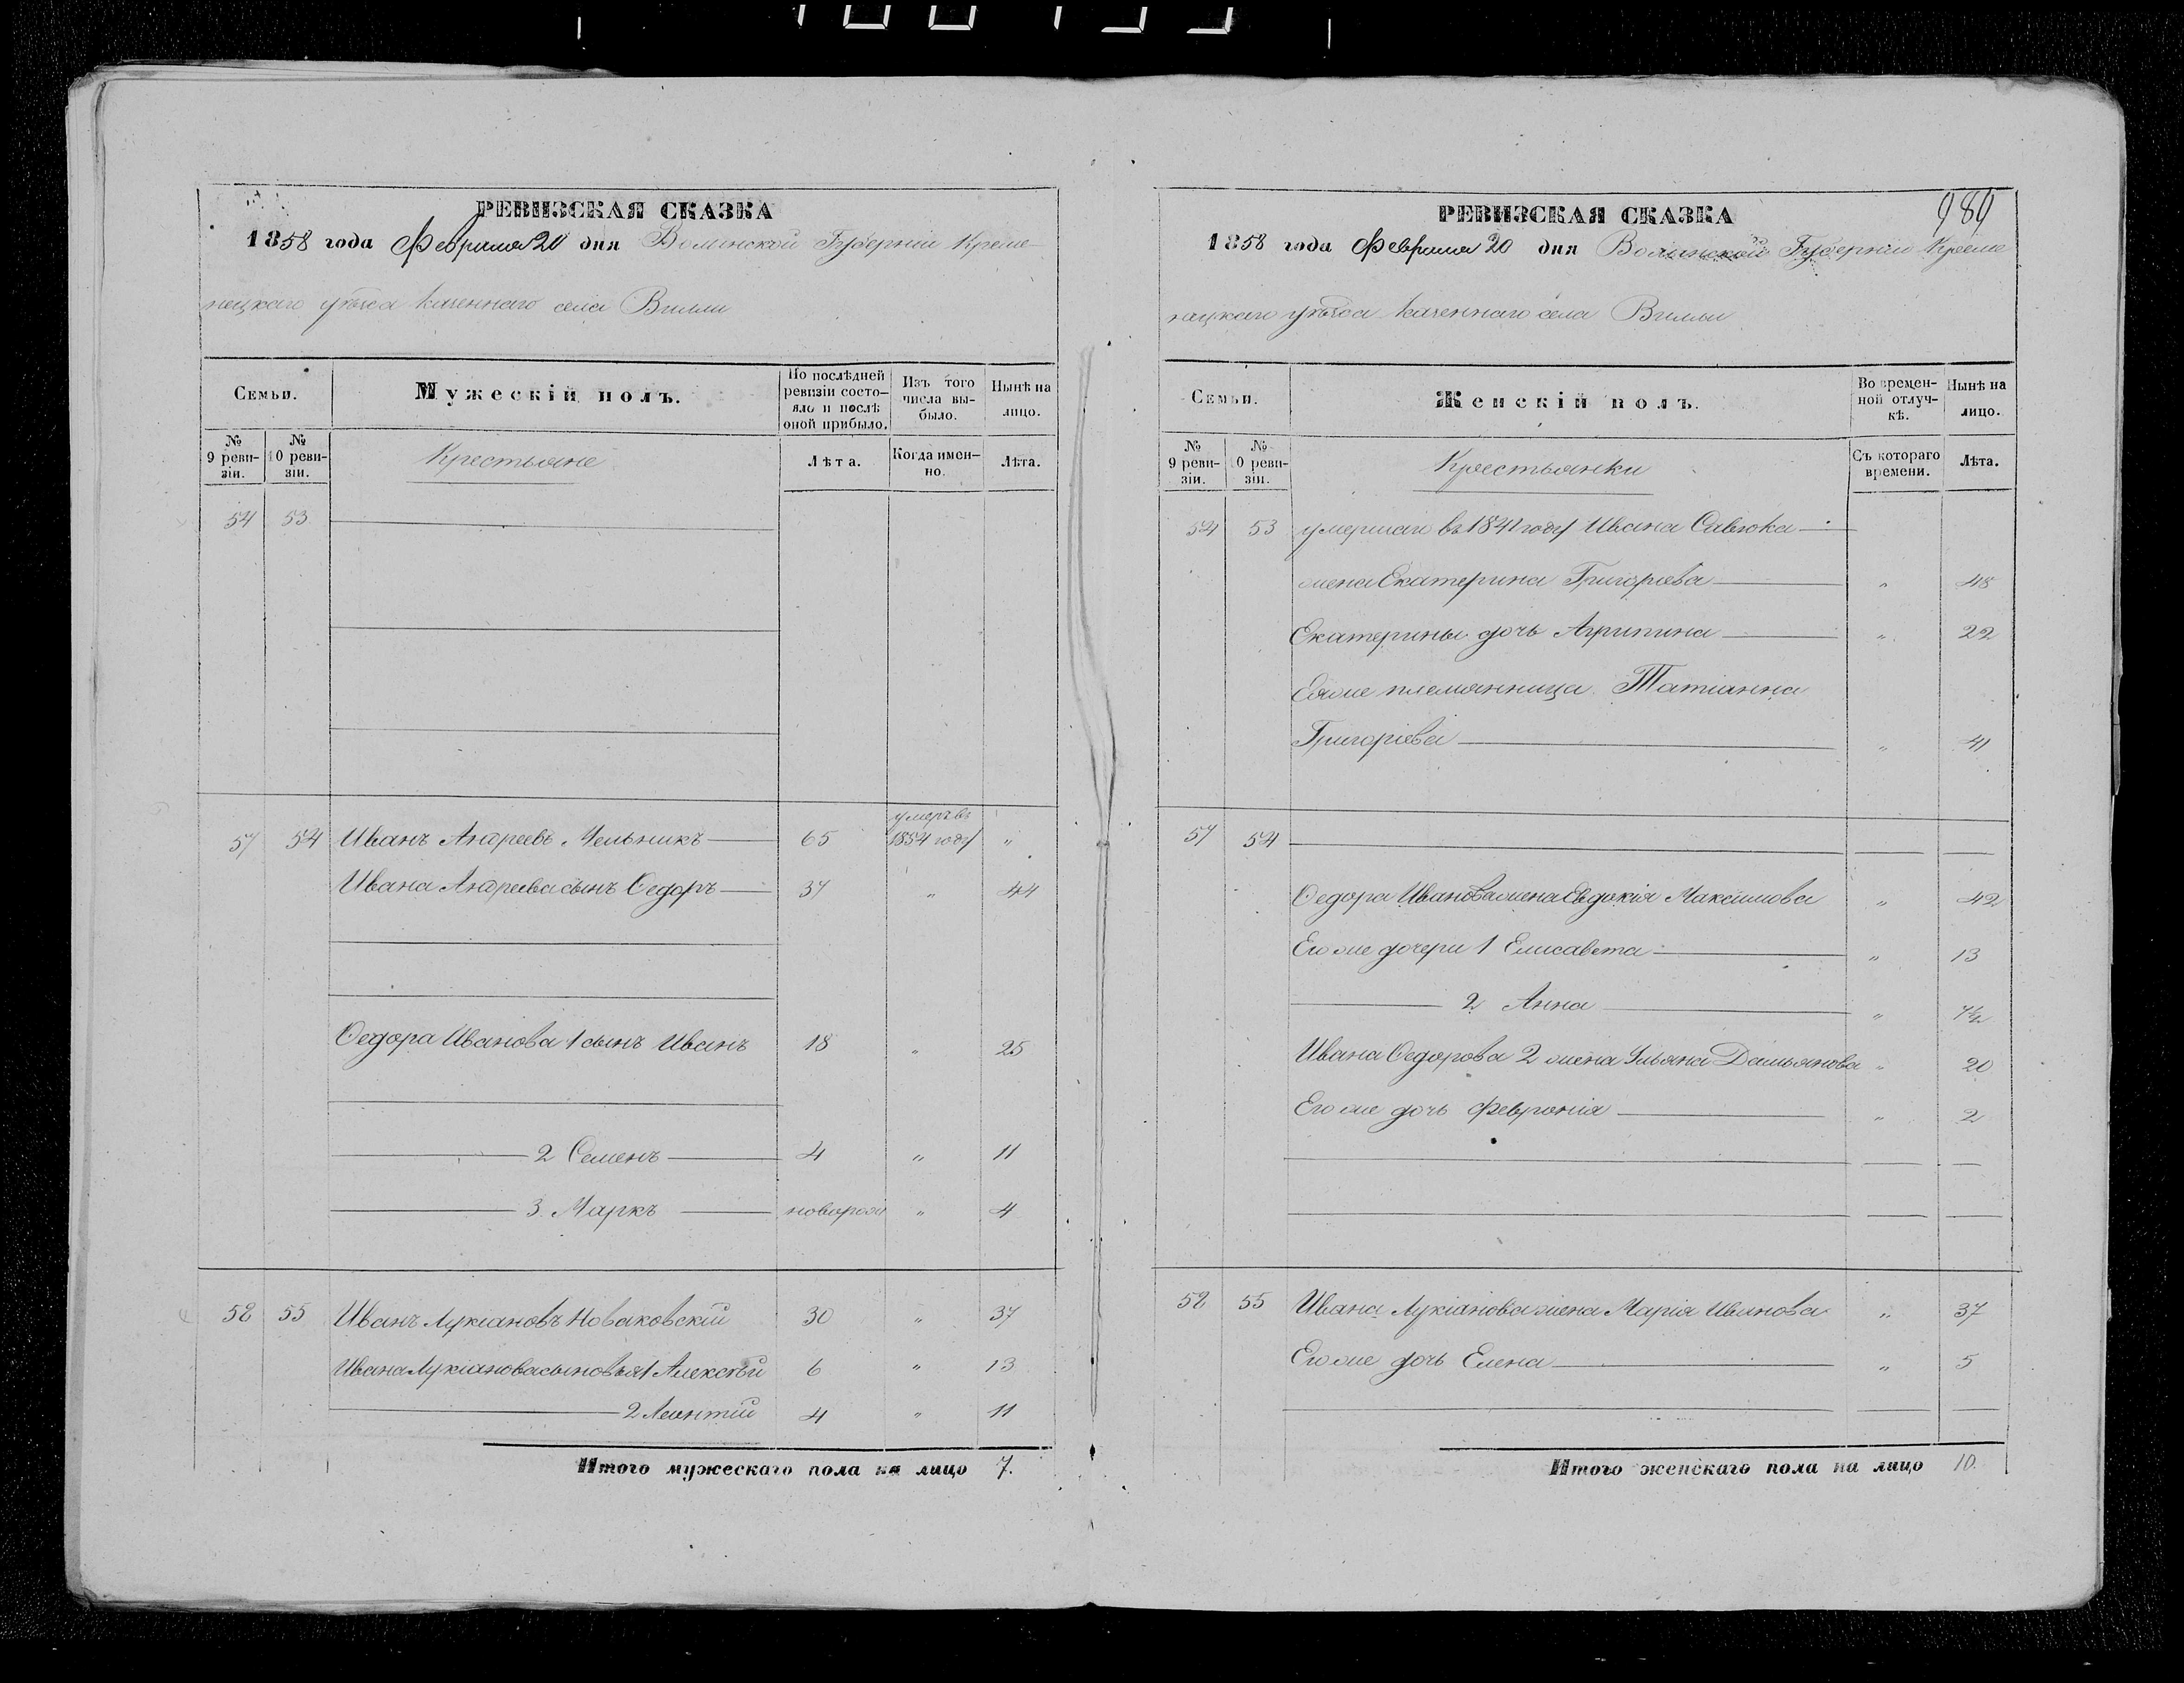 РЕВИЗСКАЯ СКАЗКА
1858 года Февраля 20 дня Волынской Губерніи Креме-
нецкаго уѣзда казеннаго села Вилли
Семьи.
Мужескій полъ.
По послѣдней ревизіи состо-яло и послѣ оной прибыло.
Изъ того числа вы-было.
Нынѣ на лицо.
№ 9 реви-зіи.
№ 10 реви-зіи.
Крестьяне
Лѣта.
Когда имен-но.
Лѣта.
54 53
умеръ въ
57 54 Иванъ Андреевъ Мельникъ 65 1854 году "
Ивана Андреева сынъ Ѳедоръ 37 " 44
Ѳедора Иванова 1 сынъ Иванъ 18 " 25
2 Семенъ 4 " 11
3. Маркъ новорож " 4
58 55 Иванъ Лукіановъ Новаковскій 30 " 37
Ивана Лукіанова сыновья 1 Алексѣй 6 " 13
2 Леонтій 4 " 11
Итого мужескаго пола на лицо 7.
989
РЕВИЗСКАЯ СКАЗКА
1858 года Февраля 20 дня Волынской Губерніи Креме
нецкаго уѣзда казеннаго села Вилли
Семьи.
Женскій полъ.
Во времен-ной отлуч-кѣ.
Нынѣ на лицо.
№ 9 реви-зіи.
№ 10 реви-зіи.
Крестьянки
Съ котораго времени.
Лѣта.
54 53 умершаго въ 1841 году Ивана Савлюка
жена Екатерина Григорьева " 48
Екатерины дочь Агрипина " 22
Еяже племянница Татіанна
Григоріева " 41
57 54
Ѳедора Иванова жена Евдокія Максимова " 42
Его же дочери 1 Елисавета " 13
2 Анна " 7½
Ивана Ѳедорова 2 жена Ульяна Дамьянова " 20
Его же дочь Февронія " 2
58 55 Ивана Лукіанова жена Марія Иванова " 37
Его же дочь Елена " 5
Итого женскаго пола на лицо 10.